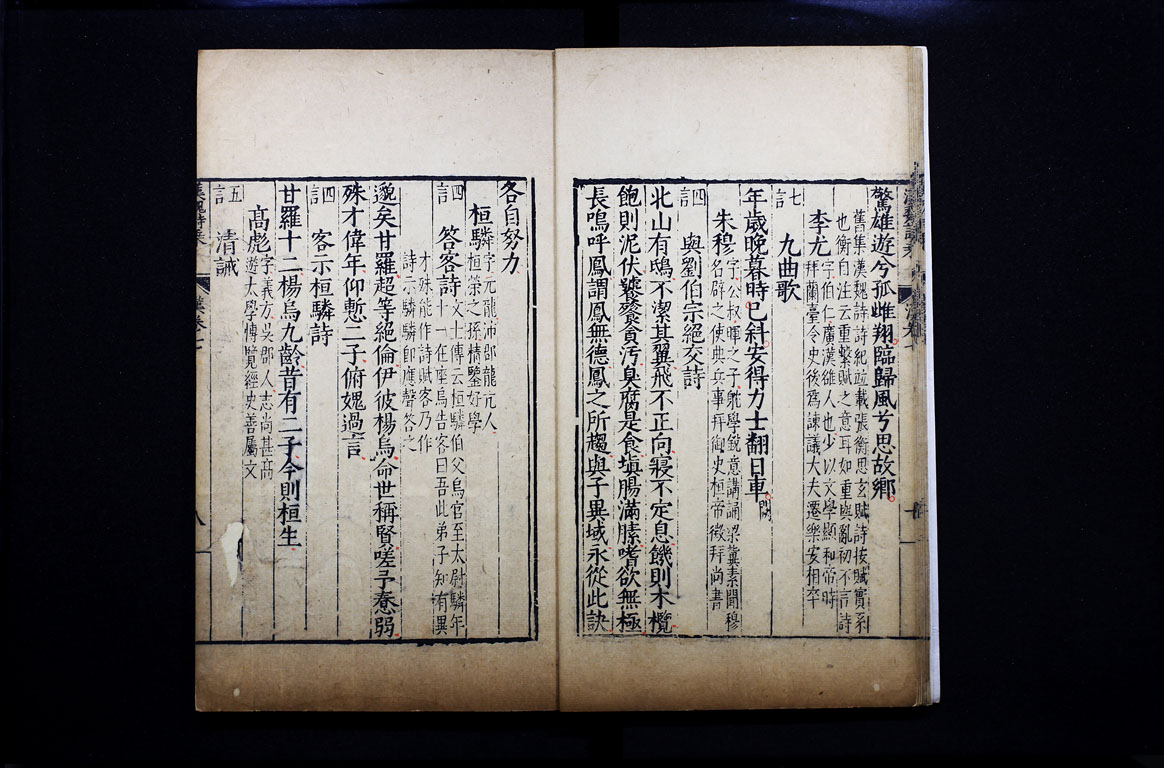 驚雄遊兮孤雌翔臨歸風兮思故鄉
舊集漢魏詩詩紀竝載張衡思玄賦詩按賦實系
也衡自注云重繫賦之意耳如重與亂初不言詩
李尤字伯仁廣漢雒人也少以文學顯和帝時
拜蘭臺令史後爲諫議大夫遷樂安相卒
九曲歌
七言
年歲晚暮時已斜安得力士翻日車闕
朱穆字公叔暉之子躭學銳意講誦梁冀素聞穆
名辟之使典兵事拜御史桓帝徵拜尚書
與劉伯宗絕交詩
四言
北山有鴟不潔其翼飛不正向寢不定息饑則木欖
飽則泥伏饕餮貪汚臭腐是食塡腸滿膆嗜欲無極
長鳴呼鳳謂鳳無德鳳之所趨與子異域永從此訣
各自努力
桓驎字元龍沛郡龍亢人
桓榮之孫精鑒好學
答客詩
四言
文士傳云桓驎伯父烏官至太尉驎年
十一在座烏告客曰吾此弟子知有異
才殊能作詩賦客乃作
詩示驎驎卽應聲答之
邈矣甘羅超等絕倫伊彼楊烏命世稱賢嗟予惷弱
殊才偉年仰慙二子俯媿過言
客示桓驎詩
四言
甘羅十二楊烏九齡昔有二子今則桓生
高彪字義方吳郡人志尚甚高
遊太學博覽經史善屬文
清誡
五言